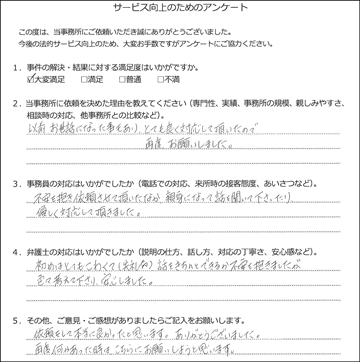 サービス向上のためのアンケート
この度は、当事務所にご依頼いただき誠にありがとうございました。
今後の法的サービス向上のため、大変お手数ですがアンケートにご協力ください。
1．事件の解決・結果に対する満足度はいかがですか。
☑大変満足　□満足　□普通　□不満
2．当事務所に依頼を決めた理由を教えてください（専門性、実績、事務所の規模、親しみやすさ、
相談時の対応、他事務所との比較など）。
以前お世話になった事もあり、とても良く対応して頂いたので
再度お願いしました。
3．事務員の対応はいかがでしたか（電話での対応、来所時の接客態度、あいさつなど）。
不安を抱き依頼させて頂いたなか親身になって話を聞いて下さったり
優しく対応して頂きました。
4．弁護士の対応はいかがでしたか（説明の仕方、話し方、対応の丁寧さ、安心感など）。
初めはとてもこわくて（失礼な）話をきちんとできるか不安を抱きましたが
色々教えて下さり、安心しました。
5．その他、ご意見・ご感想がありましたらご記入をお願いします。
依頼をして本当に良かったと思います。ありがとうございました。
再度何かあった時はこちらにお願いしようと思います。